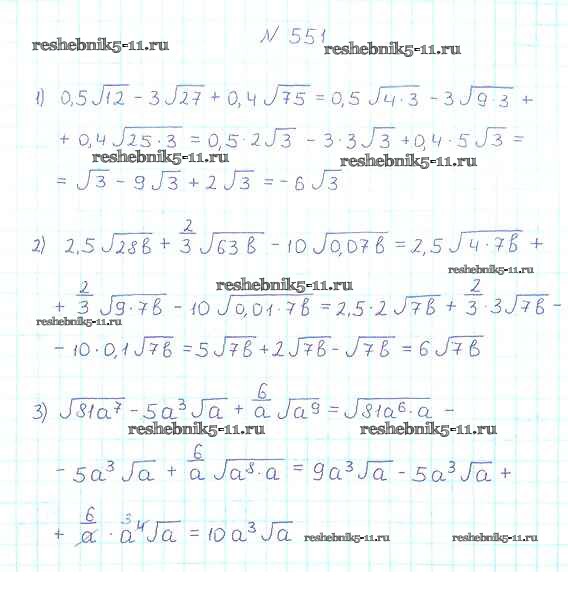 № 551
reshebnik5-11.ru
reshebnik5-11.ru
1) 0,5√12 - 3√27 + 0,4√75 = 0,5√4·3 - 3√9·3 +
+ 0,4√25·3 = 0,5·2√3 - 3·3√3 + 0,4·5√3 =
reshebnik5-11.ru
reshebnik5-11.ru
= √3 - 9√3 + 2√3 = -6√3
2) 2,5√28в + 2/3√63в - 10√0,07в = 2,5√4·7в +
reshebnik5-11.ru
reshebnik5-11.ru
+ 2/3√9·7в - 10√0,01·7в = 2,5·2√7в + 2/3·3√7в -
reshebnik5-11.ru
- 10·0,1√7в = 5√7в + 2√7в - √7в = 6√7в
3) √81a⁷ - 5a³√a + 6/a√a⁹ = √81a⁶·a -
reshebnik5-11.ru
reshebnik5-11.ru
- 5a³√a + 6/a√a⁸·a = 9a³√a - 5a³√a +
+ 6/a · a⁴ ³√a = 10a³√a
reshebnik5-11.ru
reshebnik5-11.ru